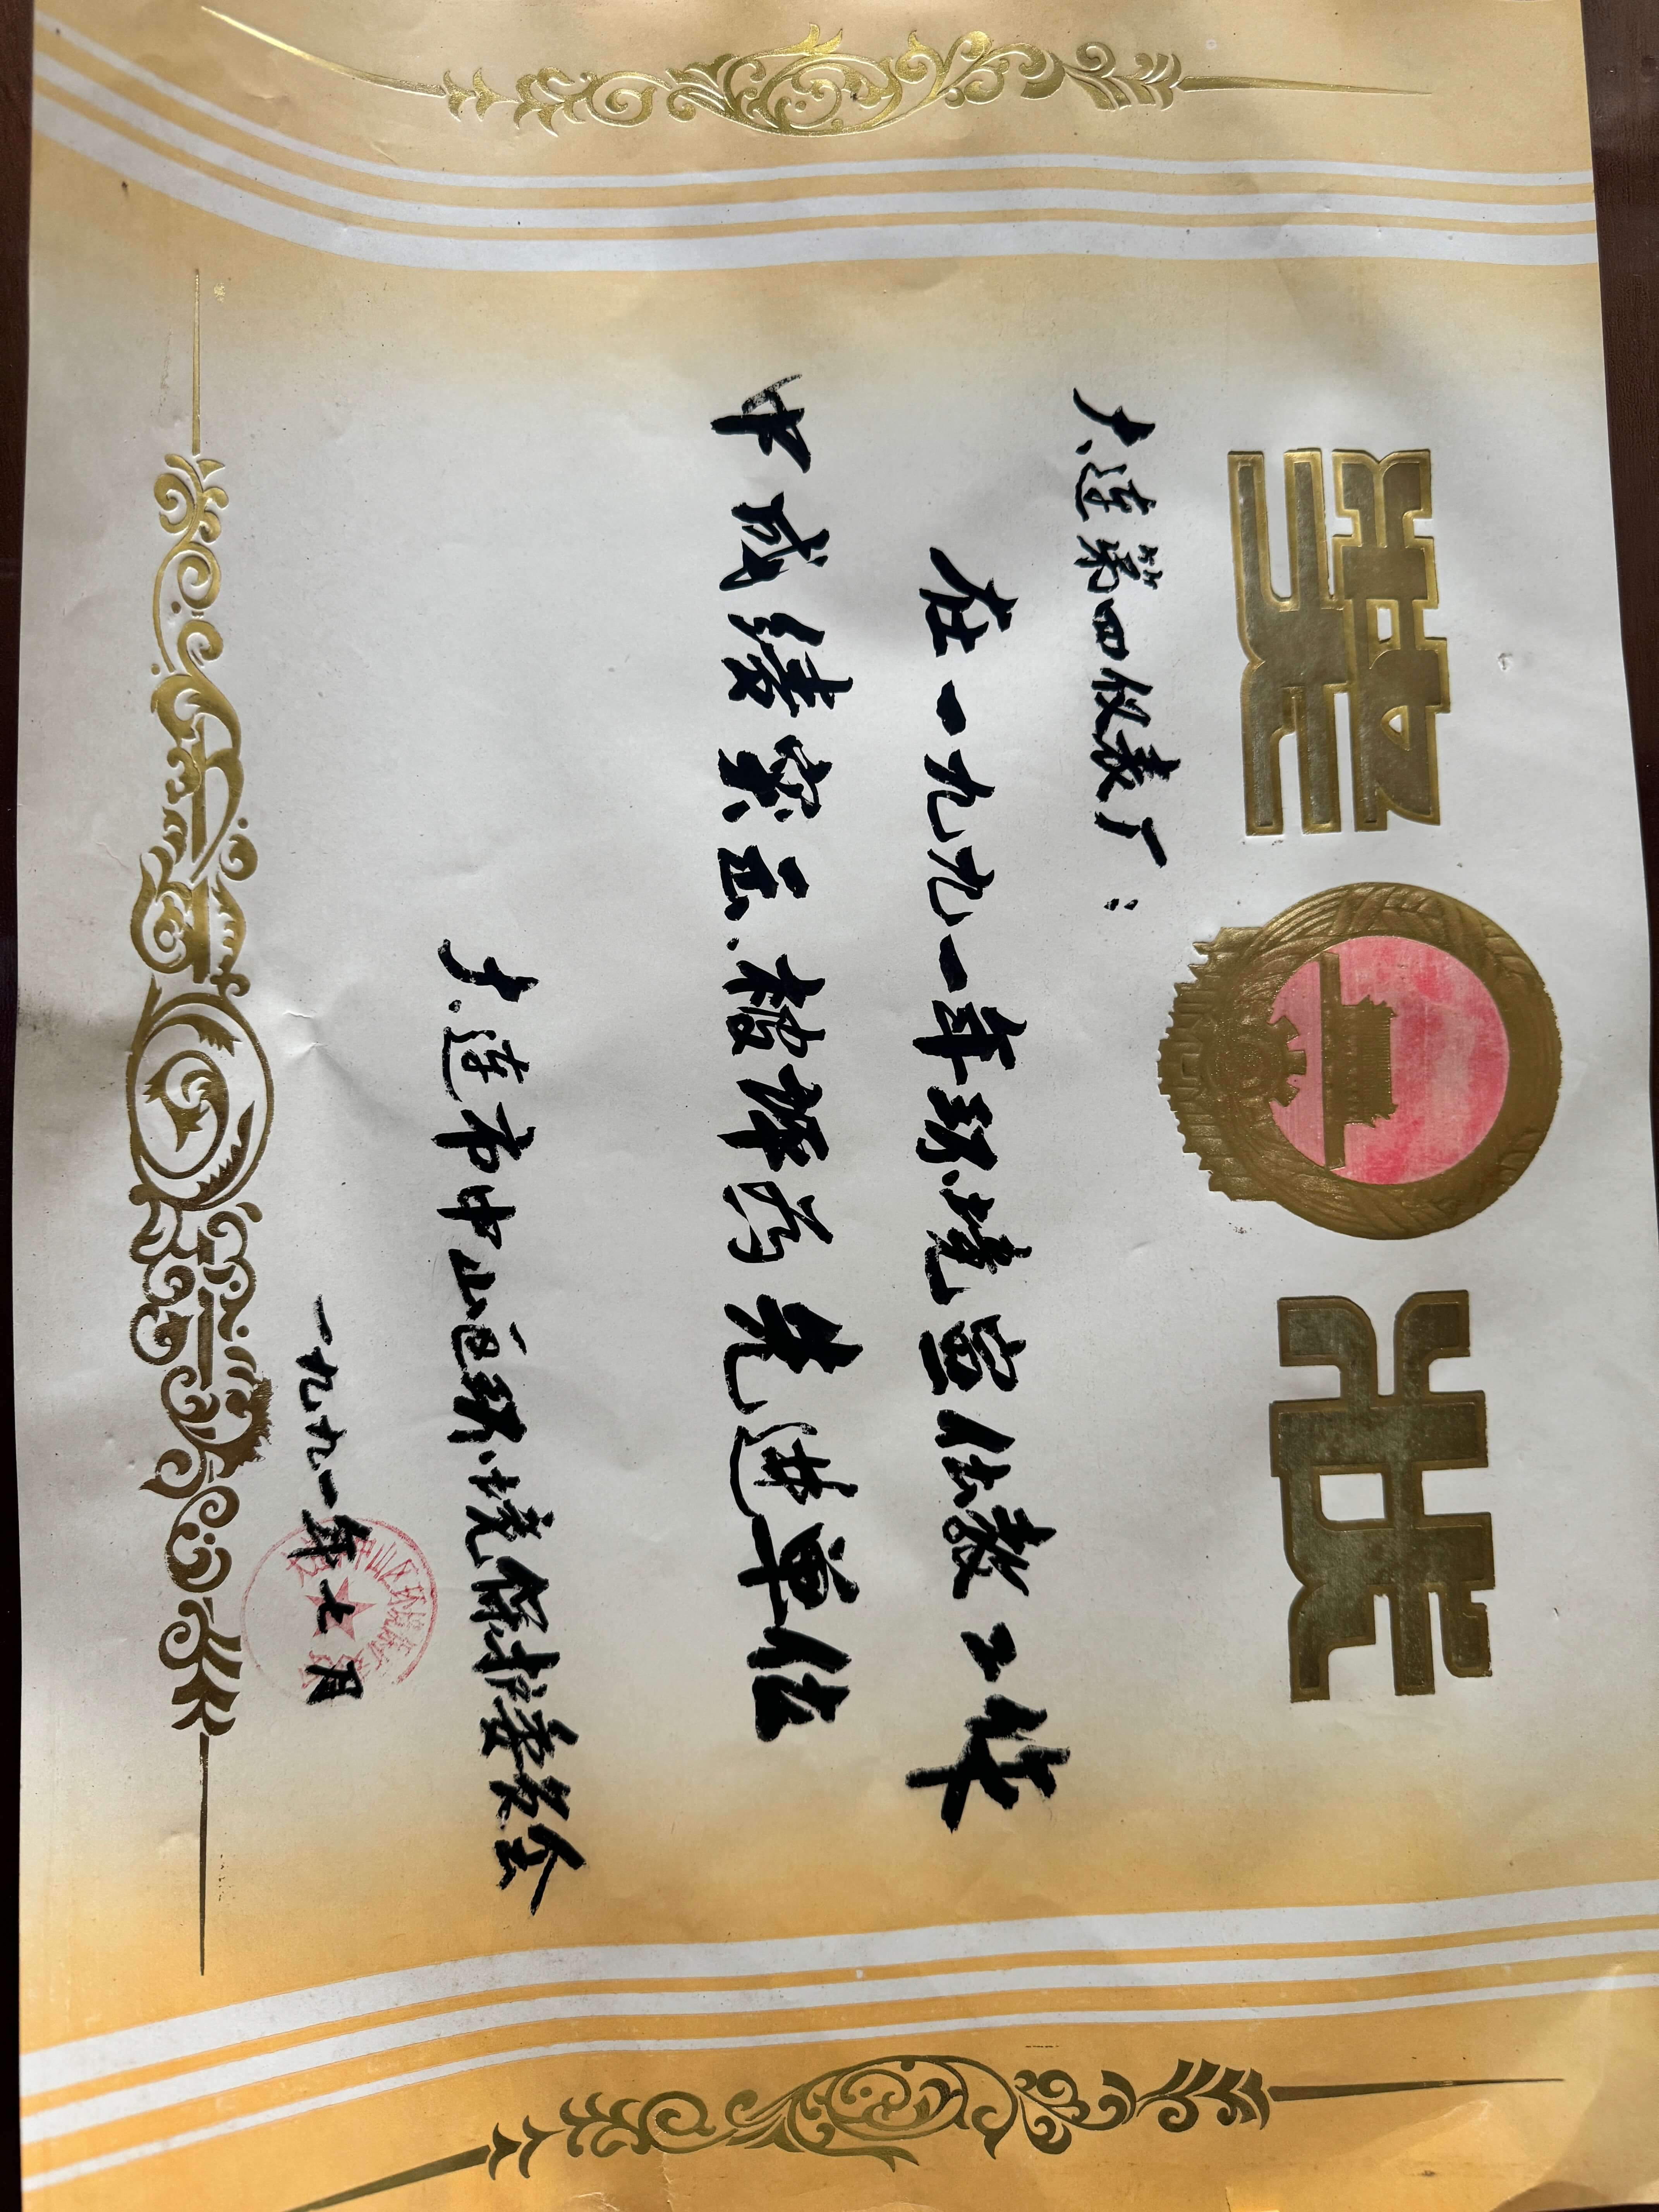 奖状
大连第四仪表厂：
在一九九一年环境宣传教工作
中成绩突出.被评为先进单位
大连市中山区环境保护委员会
一九九一年七月
中山区环境保